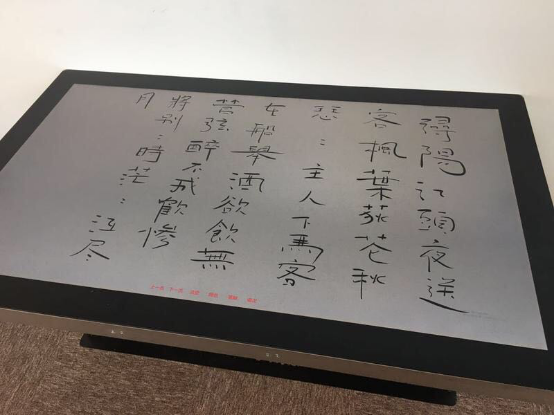 潯陽江頭夜送
客楓葉荻花秋
瑟：主人下馬客
在船舉酒欲飲無
管弦醉不成歡慘
將别：時茫：江尽
月